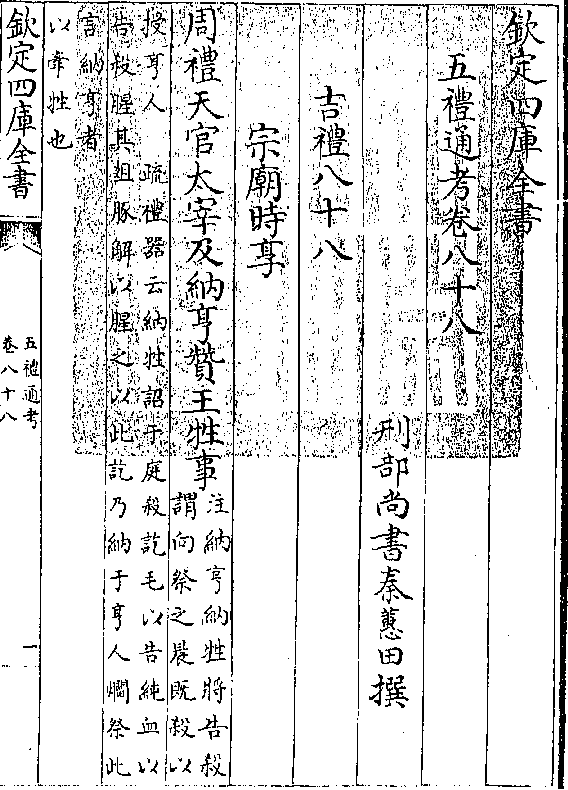 欽定四庫全書
五禮通考卷八十八
刑部尚書秦蕙田撰
吉禮八十八
宗廟時享
周禮天官太宰及納亨贊王牲事
注納亨納牲將告殺
謂向祭之晨既殺以
授亨人 疏禮器云納牲詔于庭殺訖毛以告純血以
告殺腥其俎豚解以腥之以此訖乃納于亨人爓祭此
言納亨者
以牽牲也
欽定四庫全書
五禮通考
卷八十八
一